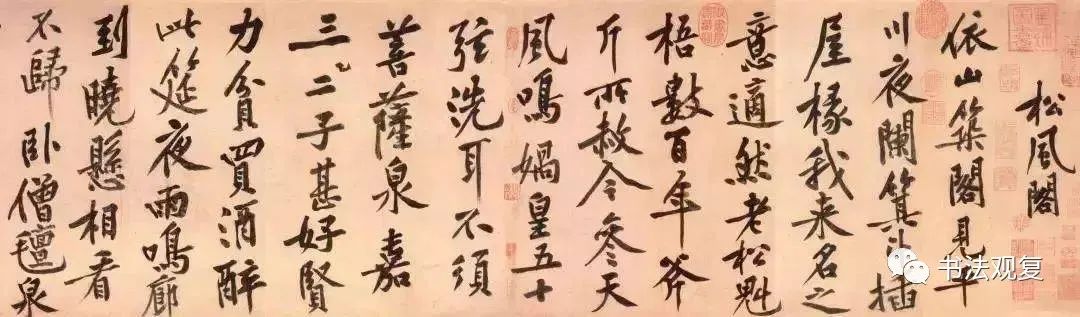 松風閣
依山築閣見平
川夜闌箕斗插
屋椽我来名之
意適然老松魁
梧數百年斧
斤所赦今參天
風鳴媧皇五十
弦洗耳不須
菩薩泉嘉
三二子甚好賢
力貧買酒醉
此筵夜雨鳴廊
到曉懸相看
不歸卧僧氊泉
书法观复